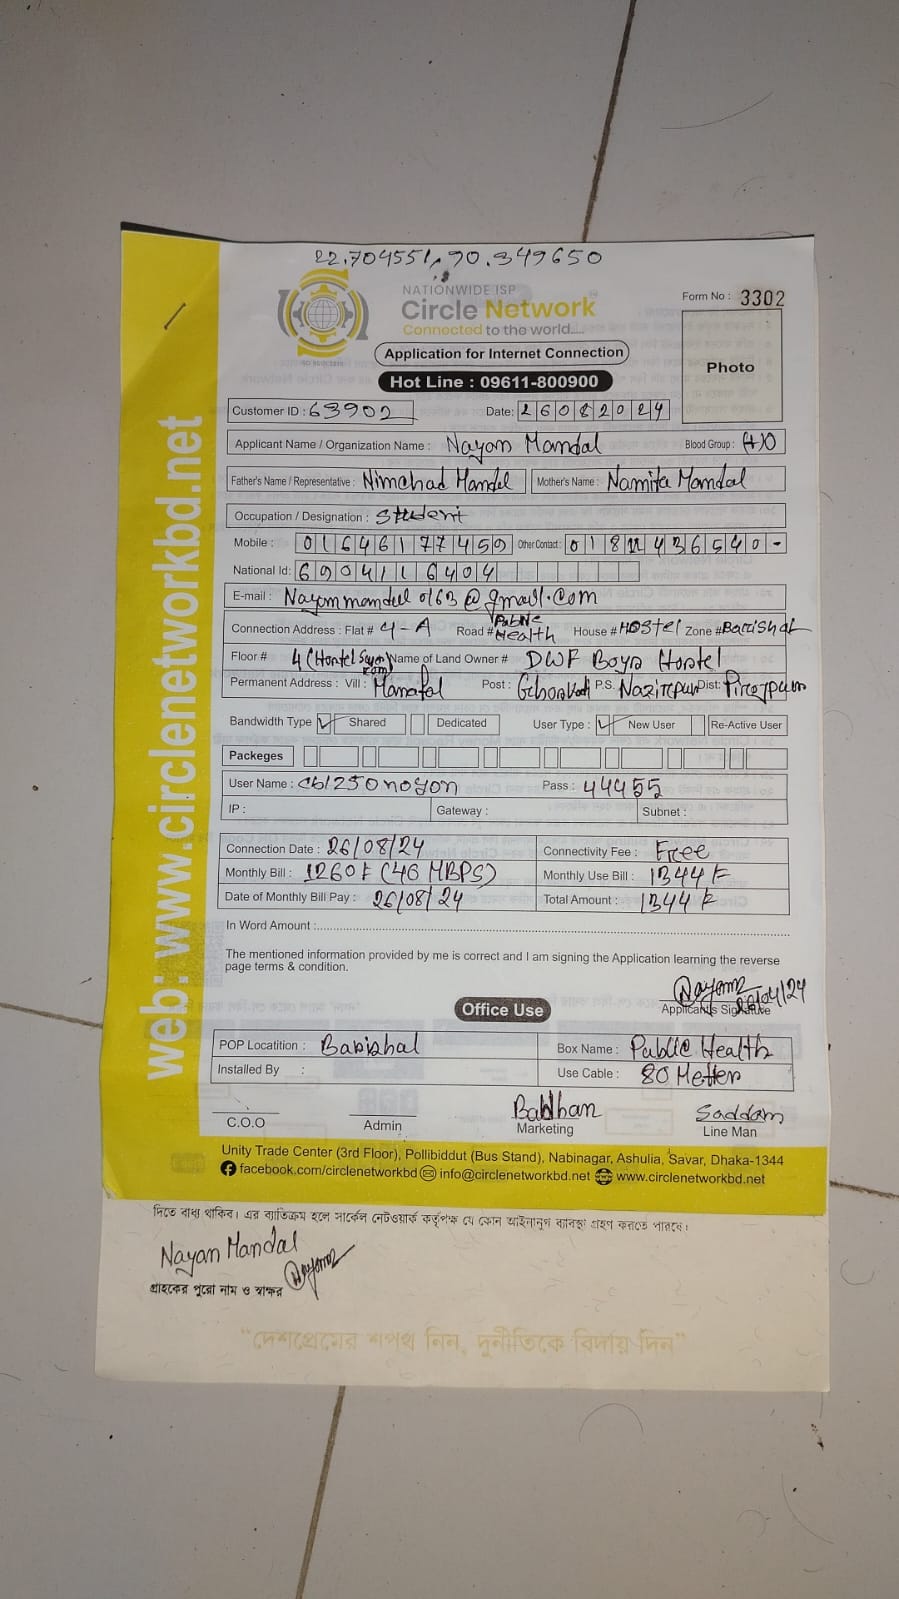 22.704551, 90.349650
NATIONWIDE ISP
Circle Network
Connected to the world....
Form No : 3302
Photo
Application for Internet Connection
Hot Line : 09611-800900
Customer ID : 63902 Date: 26082024
Applicant Name / Organization Name : Nayan Mandal Blood Group :
Father's Name / Representative : Nimchad Mandal Mother's Name : Namita Mandal
Occupation / Designation : Student
Mobile : 01646177459 Other Contact :
National Id: 6904116404
E-mail : @gmail.com
Connection Address : Flat # 4-A Road # Public Health House # Hostel Zone # Barishal
Floor # 4 (Hostel Name of Land Owner # DWF Boys Hostel
Permanent Address : Vill : Post : P.S. Nazirpur Dist: Pirojpur
Bandwidth Type Shared Dedicated User Type : New User Re-Active User
Packeges
User Name : cb1250noyon Pass : 44455
IP : Gateway : Subnet :
Connection Date : 26/08/24 Connectivity Fee : Free
Monthly Bill : 1260 (46 MBPS) Monthly Use Bill : 1344
Date of Monthly Bill Pay : 26/08/24 Total Amount : 1344
In Word Amount :
The mentioned information provided by me is correct and I am signing the Application learning the reverse
page terms & condition.
Applicant's Signature
Office Use
POP Locatition : Barishal Box Name : Public Health
Installed By : Use Cable : 80 Metter
C.O.O Admin Marketing Saddam Line Man
Unity Trade Center (3rd Floor), Pollibiddut (Bus Stand), Nabinagar, Ashulia, Savar, Dhaka-1344
facebook.com/circlenetworkbd info@circlenetworkbd.net www.circlenetworkbd.net
web: www.circlenetworkbd.net
দিতে বাধ্য থাকিব। এর ব্যতিক্রম হলে সার্কেল নেটওয়ার্ক কর্তৃপক্ষ যে কোন আইনানুগ ব্যবস্থা গ্রহণ করতে পারবে।
Nayan Mandal
গ্রাহকের পুরো নাম ও স্বাক্ষর
“দেশপ্রেমের শপথ নিন, দুর্নীতিকে বিদায় দিন”